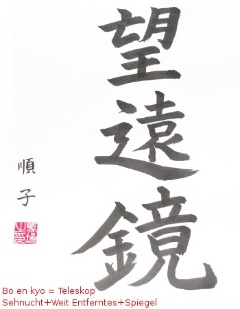 望遠鏡
順子
Bo en kyo = Teleskop
Sehnsucht+Weit Entferntes+Spiegel